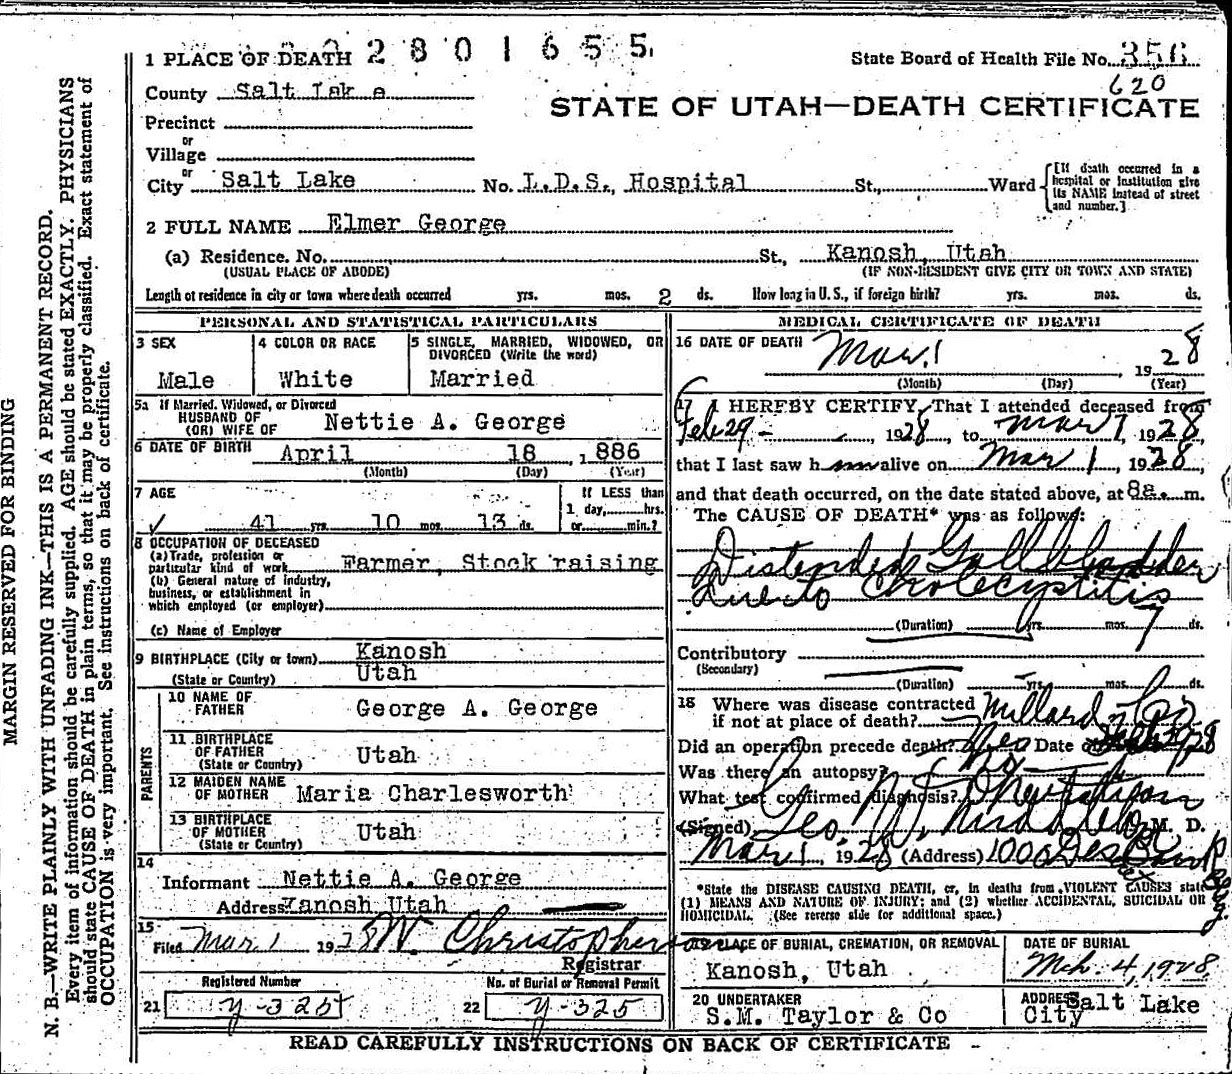 2801655
1 PLACE OF DEATH
State Board of Health File No. 356
620
County Salt Lake
STATE OF UTAH—DEATH CERTIFICATE
Precinct
or
Village
or
City Salt Lake No. L.D.S. Hospital St., Ward
[If death occurred in a hospital or institution give its NAME instead of street and number.]
2 FULL NAME Elmer George
(a) Residence. No. St., Kanosh, Utah
(USUAL PLACE OF ABODE) (IF NON-RESIDENT GIVE CITY OR TOWN AND STATE)
Length of residence in city or town where death occurred yrs. mos. 2 ds. How long in U. S., if foreign birth? yrs. mos. ds.
PERSONAL AND STATISTICAL PARTICULARS
3 SEX
Male
4 COLOR OR RACE
White
5 SINGLE, MARRIED, WIDOWED, OR DIVORCED (Write the word)
Married
5a If Married, Widowed, or Divorced
HUSBAND OF
(OR) WIFE OF Nettie A. George
6 DATE OF BIRTH April 18, 1886
(Month) (Day) (Year)
7 AGE
41 yrs. 10 mos. 13 ds.
If LESS than
1 day,......hrs.
or......min.?
8 OCCUPATION OF DECEASED
(a) Trade, profession or
particular kind of work Farmer, Stock raising
(b) General nature of industry,
business, or establishment in
which employed (or employer)
(c) Name of Employer
9 BIRTHPLACE (City or town) Kanosh
(State or Country) Utah
PARENTS
10 NAME OF
FATHER George A. George
11 BIRTHPLACE
OF FATHER Utah
(State or Country)
12 MAIDEN NAME
OF MOTHER Maria Charlesworth
13 BIRTHPLACE
OF MOTHER Utah
(State or Country)
14
Informant Nettie A. George
Address Kanosh Utah
15
Filed Mar. 1 1928 W Christopherson
Registrar
Registered Number
21 y-325
No. of Burial or Removal Permit
22 y-325
MEDICAL CERTIFICATE OF DEATH
16 DATE OF DEATH Mar. 1 1928
(Month) (Day) (Year)
17 I HEREBY CERTIFY, That I attended deceased from
Feb 29 - 1928 to Mar 1, 1928
that I last saw him alive on Mar 1, 1928,
and that death occurred, on the date stated above, at 8a.m.
The CAUSE OF DEATH* was as follows:
Distended Gall bladder
due to Cholecystitis
(Duration) yrs. mos. 7 ds.
Contributory
(Secondary)
(Duration) yrs. mos. ds.
18 Where was disease contracted
if not at place of death? Millard Co
Did an operation precede death? No Date of
Was there an autopsy? No
What test confirmed diagnosis?
(Signed) Geo W. Middleton M. D.
Mar 1, 1928 (Address) 1000 Des Bank
*State the DISEASE CAUSING DEATH, or, in deaths from VIOLENT CAUSES state
(1) MEANS AND NATURE OF INJURY; and (2) whether ACCIDENTAL, SUICIDAL OR
HOMICIDAL. (See reverse side for additional space.)
19 PLACE OF BURIAL, CREMATION, OR REMOVAL
Kanosh, Utah
DATE OF BURIAL
Mch. 4, 1928
20 UNDERTAKER
S.M. Taylor & Co
ADDRESS Salt Lake
City
READ CAREFULLY INSTRUCTIONS ON BACK OF CERTIFICATE
MARGIN RESERVED FOR BINDING
N. B.—WRITE PLAINLY WITH UNFADING INK—THIS IS A PERMANENT RECORD.
Every item of information should be carefully supplied. AGE should be stated EXACTLY. PHYSICIANS
should state CAUSE OF DEATH in plain terms, so that it may be properly classified. Exact statement of
OCCUPATION is very important. See instructions on back of certificate.